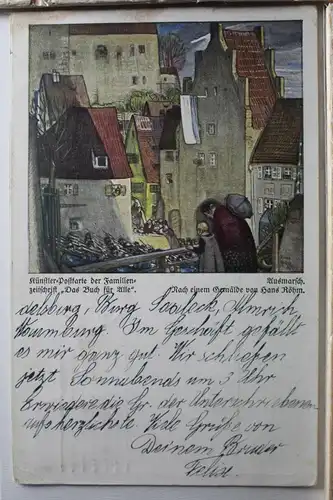 Künstler-Postkarte der Familien-
zeitschrift „Das Buch für Alle“.
Ausmarsch.
Nach einem Gemälde von Hans Röhm.
delsburg, Burg Saaleck, Almrich,
Naumburg. Im Geschäft gefällt
es mir ganz gut. Wir schließen
jetzt Sonnabends um 3 Uhr
Erwiedere die Gr. der Unterschriebenen
aufs herzlichste. Viele Grüße von
Deinem Bruder
Felix.